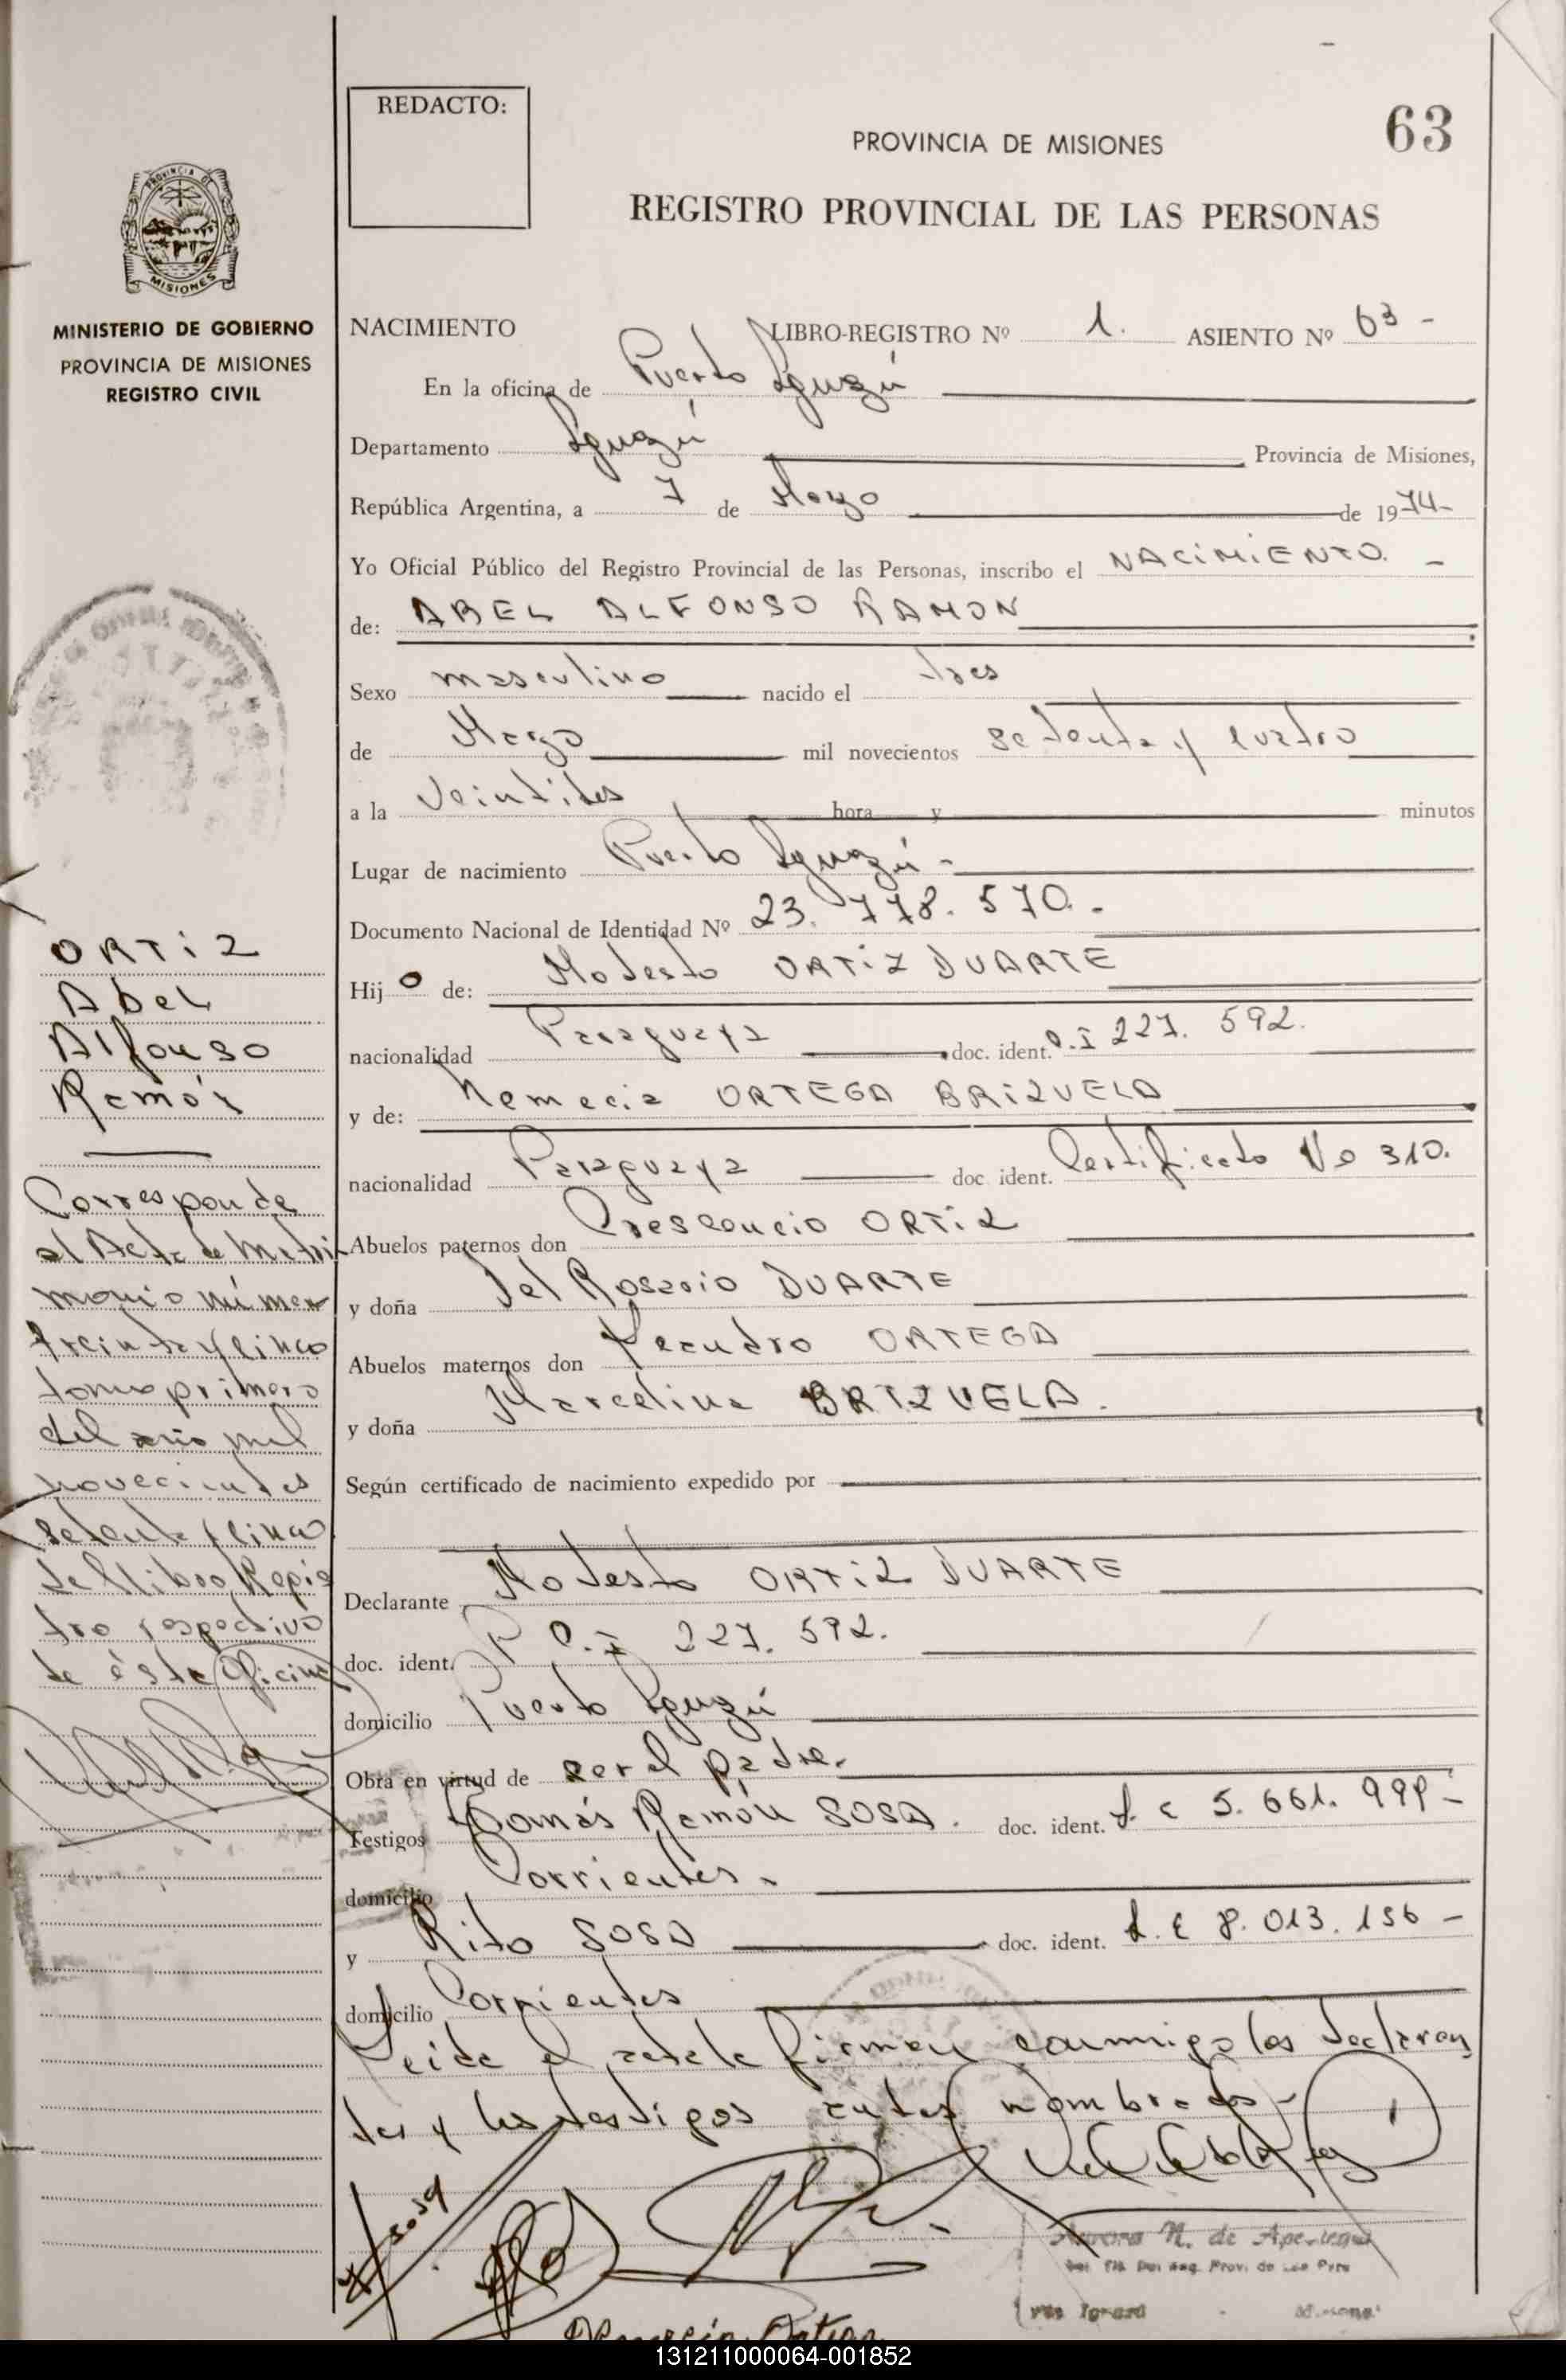 REDACTO:
PROVINCIA DE MISIONES
63
REGISTRO PROVINCIAL DE LAS PERSONAS
MISIONES
MINISTERIO DE GOBIERNO
PROVINCIA DE MISIONES
REGISTRO CIVIL
NACIMIENTO LIBRO-REGISTRO Nº 1. ASIENTO Nº 63-
En la oficina de Puerto Iguazú
Departamento Iguazú Provincia de Misiones,
República Argentina, a 7 de Mayo de 1974-
Yo Oficial Público del Registro Provincial de las Personas, inscribo el NACIMIENTO. -
de: ABEL ALFONSO RAMON
Sexo masculino nacido el tres
de Mayo mil novecientos setenta y cuatro
a la hora y minutos
Lugar de nacimiento Puerto Iguazú-
Documento Nacional de Identidad Nº 23.778.570.-
Hijo de: Modesto ORTIZ DUARTE
nacionalidad Paraguaya doc. ident. C.I 227.592.
y de: Nemecia ORTEGA BRIZUELA
nacionalidad Paraguaya doc ident. Certificado No 310.
Abuelos paternos don Crescencio ORTIZ
y doña del Rosario DUARTE
Abuelos maternos don Leandro ORTEGA
y doña Marcelina BRIZUELA.
Según certificado de nacimiento expedido por
Declarante Modesto ORTIZ DUARTE
doc. ident. C.I 227.592.
domicilio Puerto Iguazú
Obra en virtud de ser el padre.
Testigos Tomás Ramón SOSA. doc. ident. 5.661.999-
domicilio Corrientes.
y Rito SOSA doc. ident. L.E 8.013.156-
domicilio Corrientes
Leida el acta la firman conmigo los declaran
tes y los testigos antes nombrados-
ORTIZ
Abel
Alfonso
Ramón
Corresponde
al Acta de Matri
monio número
treinta y cinco
tomo primero
del año mil
novecientos
setenta y cinco
del libro Regis
tro respectivo
de ésta Oficina
Sosa
Aurora N. de
Nemecia Ortega
131211000064-001852